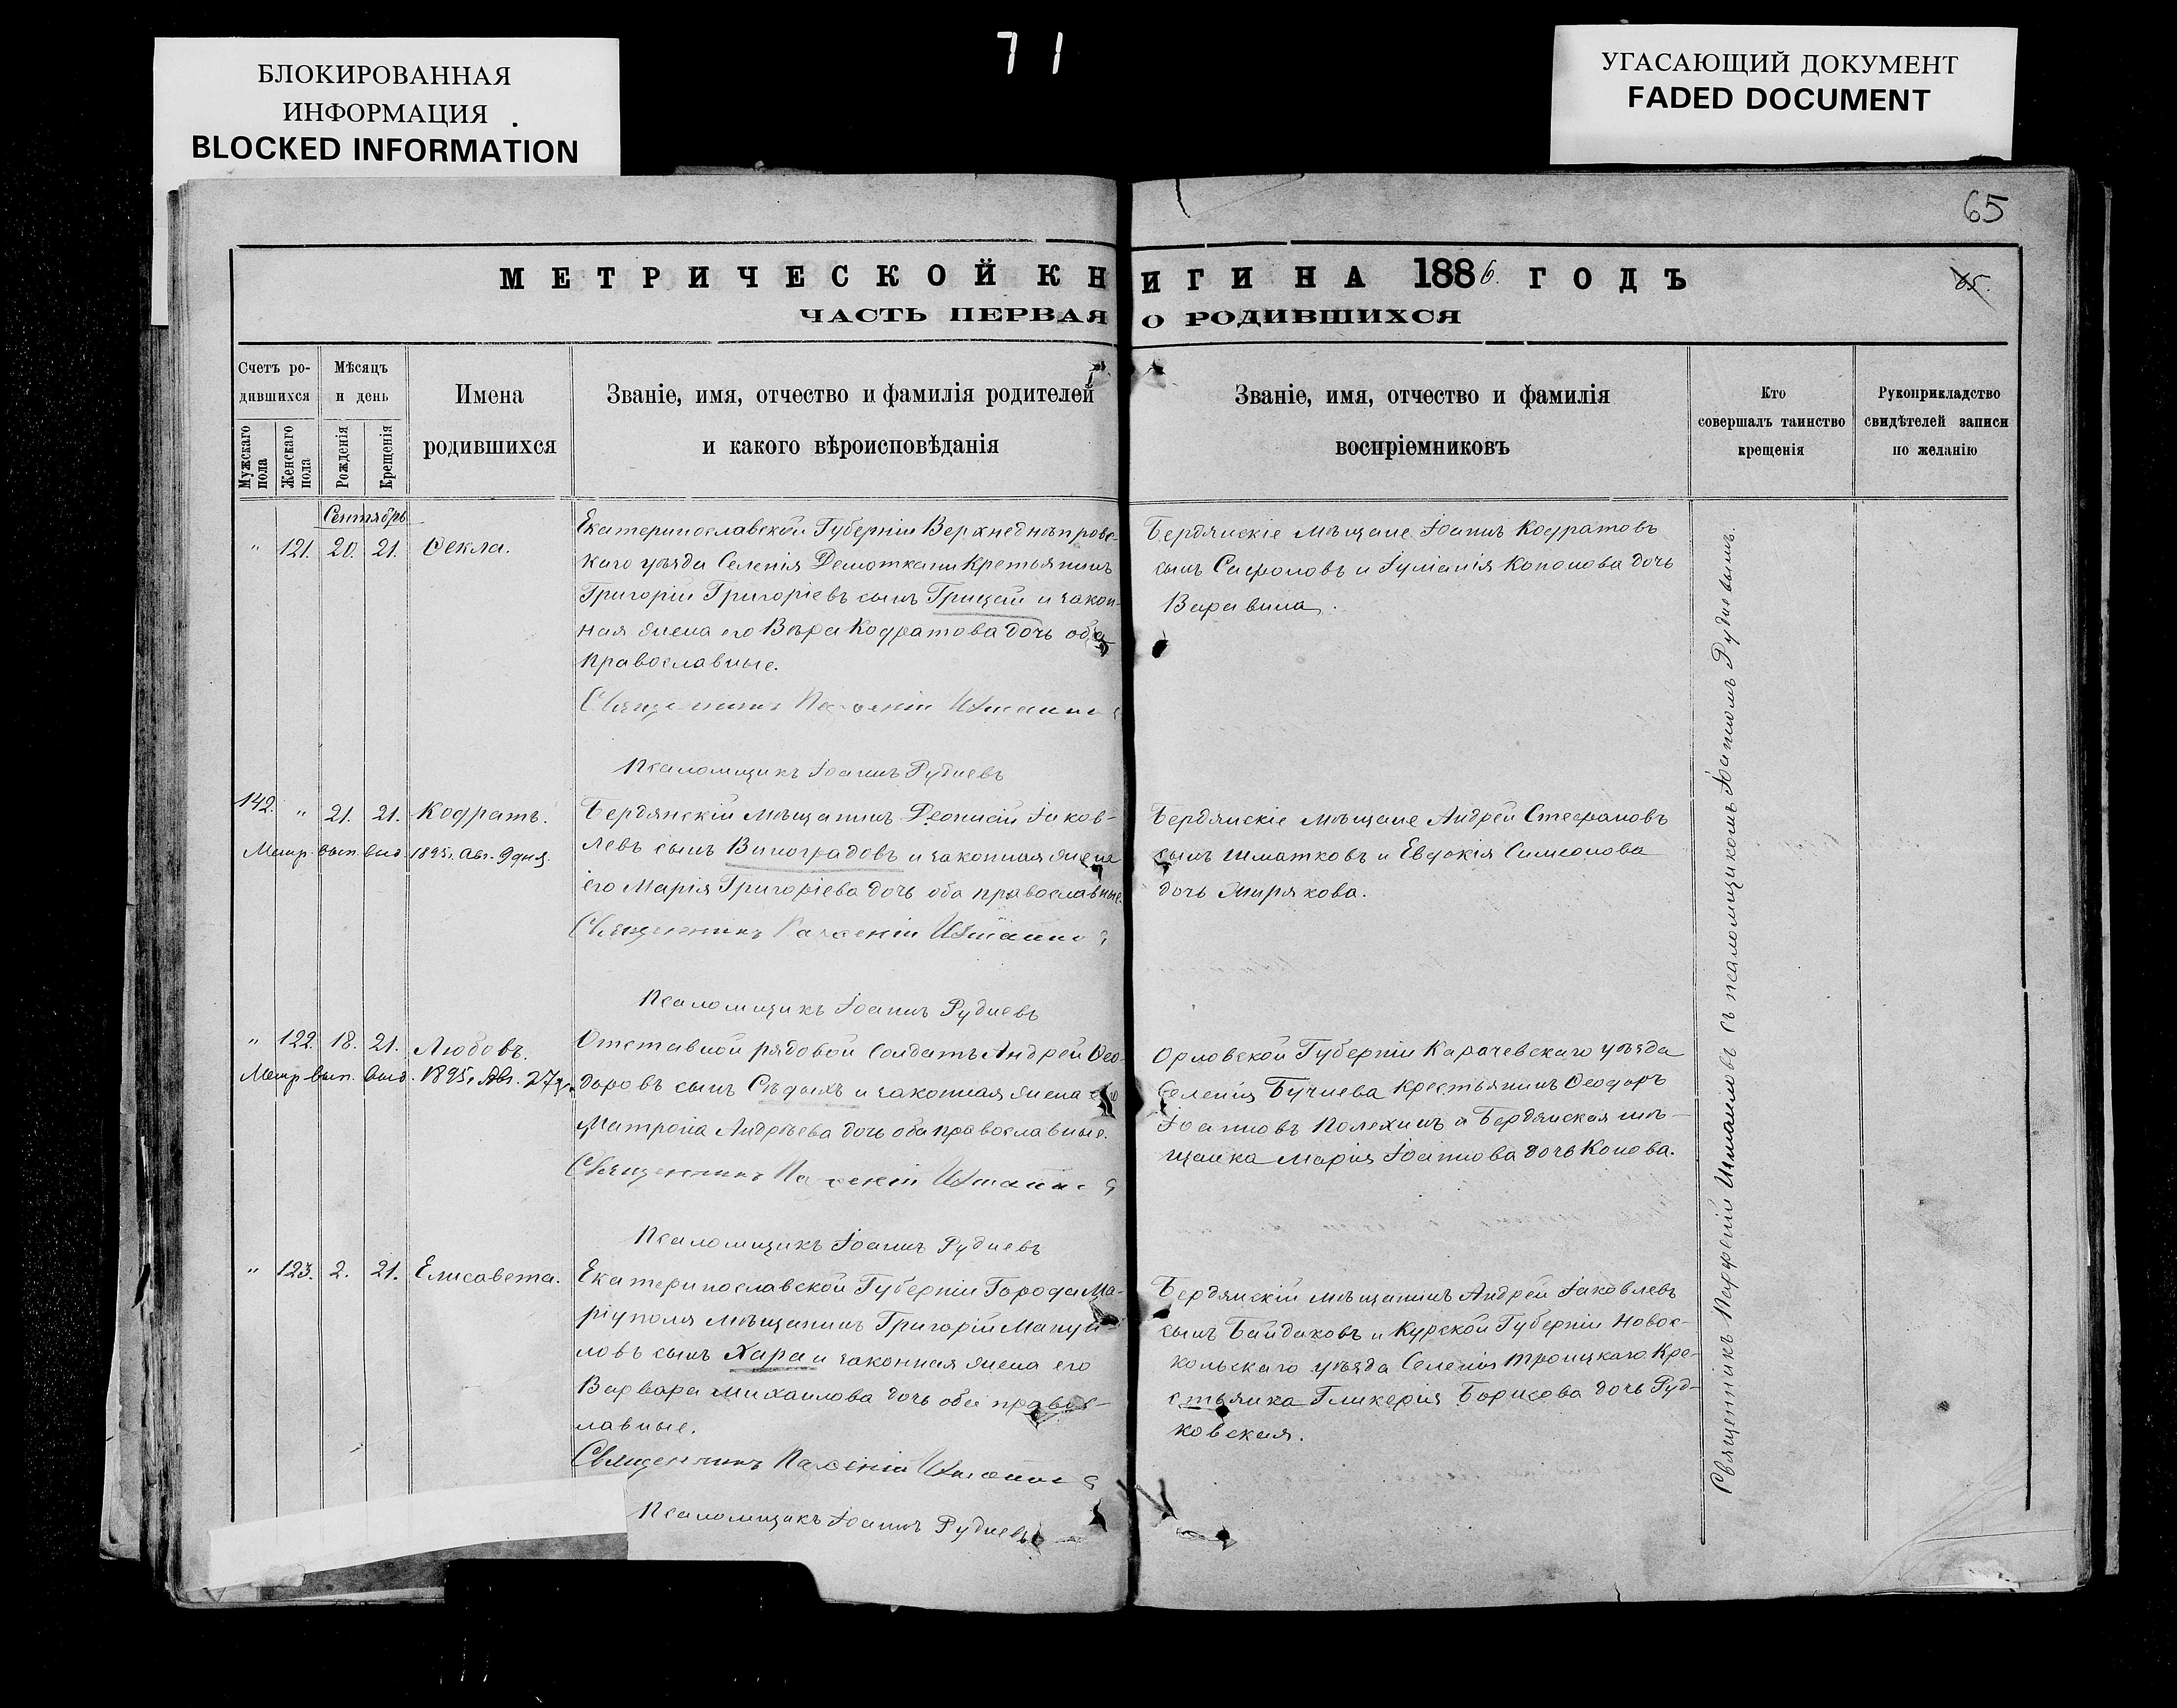 71
БЛОКИРОВАННАЯ
ИНФОРМАЦИЯ
BLOCKED INFORMATION
УГАСАЮЩИЙ ДОКУМЕНТ
FADED DOCUMENT
65
МЕТРИЧЕСКОЙ КНИГИ НА 1886 ГОДЪ
65.
ЧАСТЬ ПЕРВАЯ О РОДИВШИХСЯ
Счетъ ро-
дившихся
Мужскаго пола
Женскаго пола
Мѣсяцъ
и день
Рожденія
Крещенія
Имена
родившихся
Званіе, имя, отчество и фамилія родителей
и какого вѣроисповѣданія
Званіе, имя, отчество и фамилія
воспріемниковъ
Кто
совершалъ таинство
крещенія
Рукоприкладство
свидѣтелей записи
по желанію
Сентябрь
" 121. 20. 21. Ѳекла.
Екатеринославской Губерніи Верхнеднѣпровс-
каго уѣзда Селенія Демоткани Крестьянинъ
Григорій Григоріевъ сынъ Грицай и закон-
ная жена его Вѣра Кодратова дочь оба
православные.
Священникъ Парѳеній
Псаломщикъ Іоаннъ Рудневъ
Бердянскіе мѣщане Іоаннъ Кодратовъ
сынъ Сафоновъ и Іуліанія Кононова дочь
Варавина.
142. " 21. 21. Кодратъ.
Метр. вып. выд. 1895г. Авг. 9 дня.
Бердянскій мѣщанинъ Деонисій Іаков-
левъ сынъ Виноградовъ и законная жена
его Марія Григоріева дочь оба православные.
Священникъ Парѳеній
Псаломщикъ Іоаннъ Рудневъ
Бердянскіе мѣщане Андрей Стефановъ
сынъ Шматковъ и Евдокія Симеонова
дочь Жирякова.
" 122. 18. 21. Любовь.
Метр. вып. выд. 1895г. Авг. 27 д.
Отставной рядовой солдатъ Андрей Ѳео-
доровъ сынъ Сѣдыхъ и законная жена его
Матрона Андрѣева дочь оба православные.
Священникъ Парѳеній
Псаломщикъ Іоаннъ Рудневъ
Орловской Губерніи Карачевскаго уѣзда
Селенія Бучнева Крестьянинъ Ѳеодоръ
Іоанновъ Полехинъ и Бердянская мѣ-
щанка Марія Іоаннова дочь Конова.
" 123. 2. 21. Елисавета.
Екатеринославской Губерніи Города Ма-
ріуполя мѣщанинъ Григорій Мануй-
ловъ сынъ Хара и законная жена его
Варвара Михаилова дочь оба правос-
лавные.
Священникъ Парѳеній
Псаломщикъ Іоаннъ Рудневъ
Бердянскій мѣщанинъ Андрей Іаковлевъ
сынъ Байдиковъ и Курской Губерніи Новос-
кольскаго уѣзда Селенія Троицкаго Кре-
стьянка Гликерія Борисова дочь Руд-
ковская.
Священникъ Парѳеній Шмаиловъ съ псаломщикомъ Іоанномъ Рудневымъ.